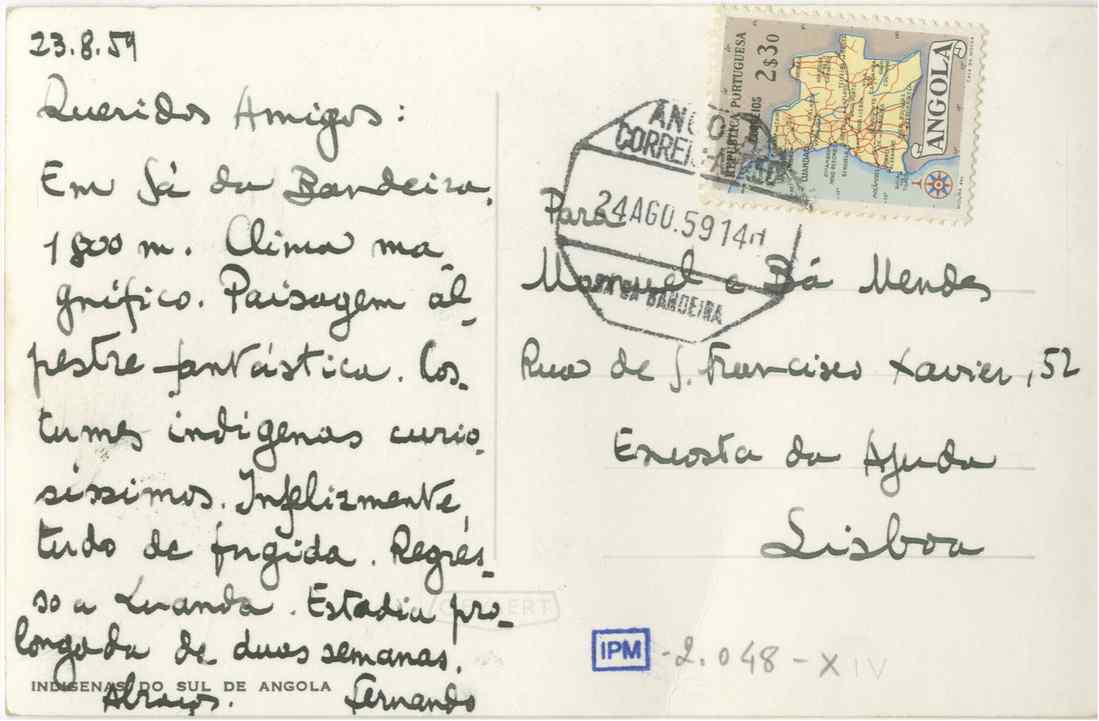 23.8.59
Queridos Amigos:
Em Sá da Bandeira.
1800 m. Clima ma-
gnífico. Paisagem al-
pestre fantástica. Cos-
tumes indígenas curio-
sissimos. Infelizmente,
tudo de fugida. Regres-
so a Luanda. Estadia pro-
longada de duas semanas.
Abraços. Fernando
INDIGENAS DO SUL DE ANGOLA
REPÚBLICA PORTUGUESA
CORREIOS 2$30
ANGOLA
LUANDA
ANGOLA
CORREIO
24 AGO. 59 14H
SÁ DA BANDEIRA
Para
Manuel e Bá Mendes
Rua de S. Francisco Xavier, 52
Encosta da Ajuda
Lisboa
GEVAERT
IPM -2.048-XIV